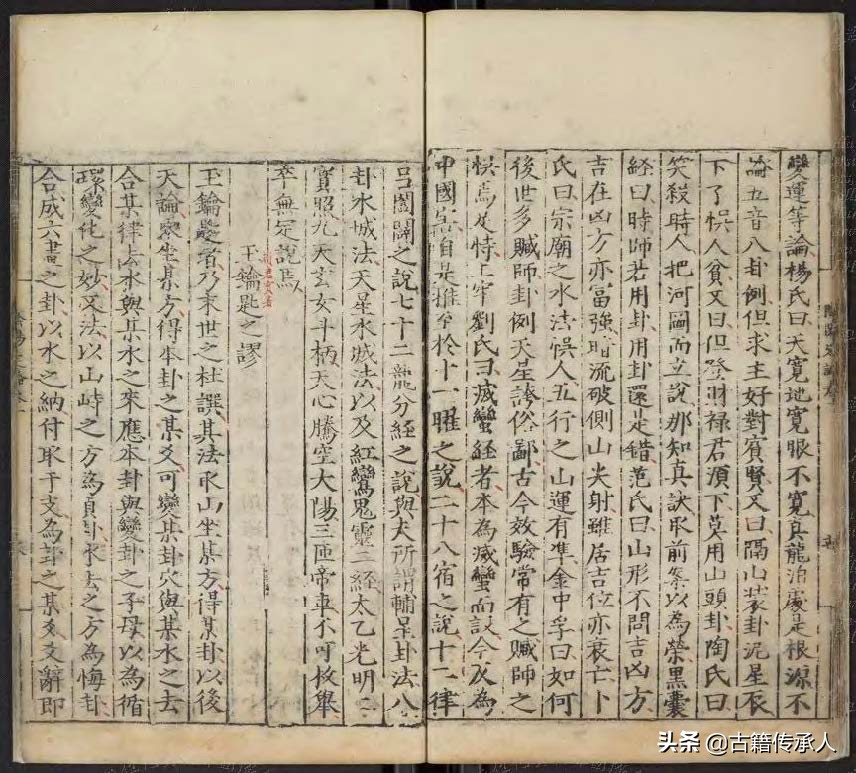 變運等論楊氏曰天寬地寬眼不寬真龍泊處是根源不
論五音八卦例但求主好對賓賢又曰隔山裝卦泥星辰
下了悞人貧又曰但登財祿君須下莫用山頭卦陶氏曰
笑殺時人把河圖而立說那知真訣取前案以為榮黑囊
経曰時師若用卦用卦還是錯范氏曰山形不問吉凶方
吉在凶方亦富強暗流破側山尖射雖居吉位亦衰亡卜
氏曰宗廟之水法悞人五行之山運有凖金中孚曰如何
後世多賊師卦例天星誇俗鄙古今效驗常有之賊師之
悞焉足恃上牢劉氏曰滅蠻經者本為滅蠻而設今反為
中國害自某推至於十一曜之說二十八宿之說十二律
呂闔闢之說七十二龍分経之說與夫所謂輔星卦法八
卦水城法天星水城法以及紅鸞鬼靈二経太乙光明
寶照九天玄女斗柄天心騰空太陽三匝帝車不可枚舉
卒無定說焉
玉鑰匙之謬
玉鑰匙者乃末世之杜譔其法取山坐某方得某卦以後
天論來坐某方得本卦之某爻可變某卦穴與某水之去
合某律去水與某水之來應本卦與變卦之子母以為循
環變化之妙又法以山峙之方為貞卦水去之方為悔卦
合成六畫之卦以水之納付取干支為卦之某爻爻辭即
頭条 @古籍传承人